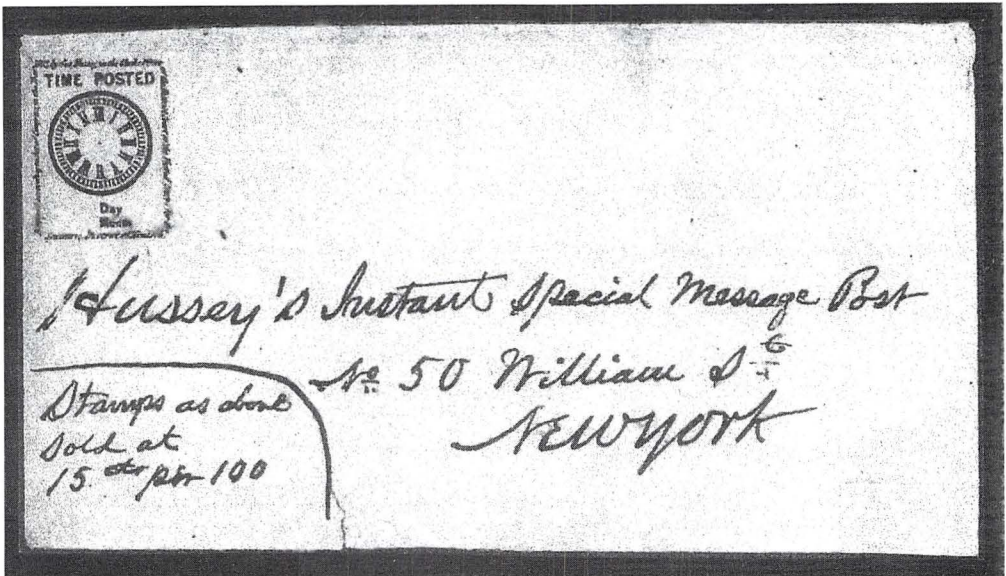 TIME POSTED
Day
Hussey's Instant Special Message Post
No 50 William St
New York
Stamps as above
sold at
15 cts per 100